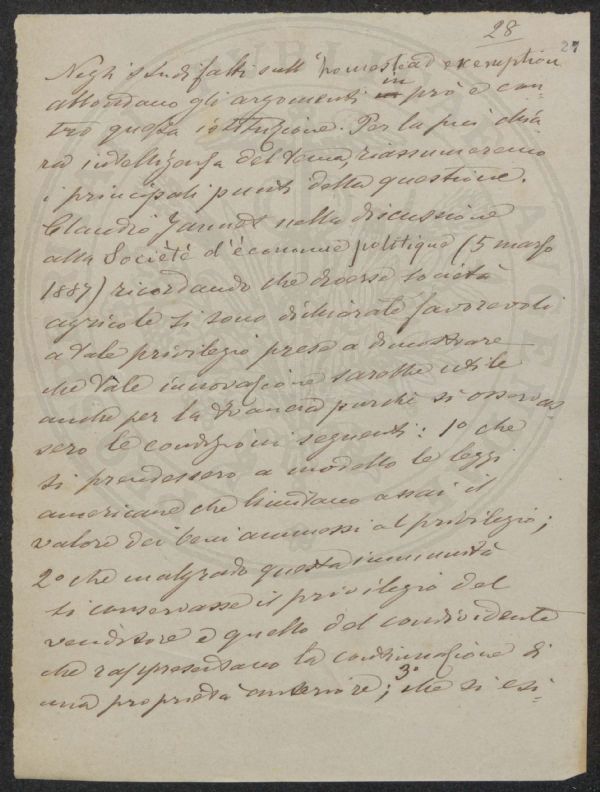 28
27
Negli studi fatti sull' "homestead exemption
abbondano gli argomenti in prò e con-
tro questa istituzione. Per la più chia
ra intelligenza del tema, riassumeremo
i principali punti della questione.
Claudio Jannet nella discussione
alla Société d'économie politique (5 marzo
1887) ricordando che diverse società
agricole si sono dichiarate favorevoli
a tale privilegio prese a dimostrare
che tale innovazione sarebbe utile
anche per la Francia purché si osservas
sero le condizioni seguenti: 1º che
si prendessero a modello le leggi
americane che limitano assai il
valore dei beni ammessi al privilegio;
2º che malgrado questa immunità
si conservasse il privilegio del
venditore e quello del condividente
che rappresentano la continuazione di
una proprietà anteriore; 3º che si esi-